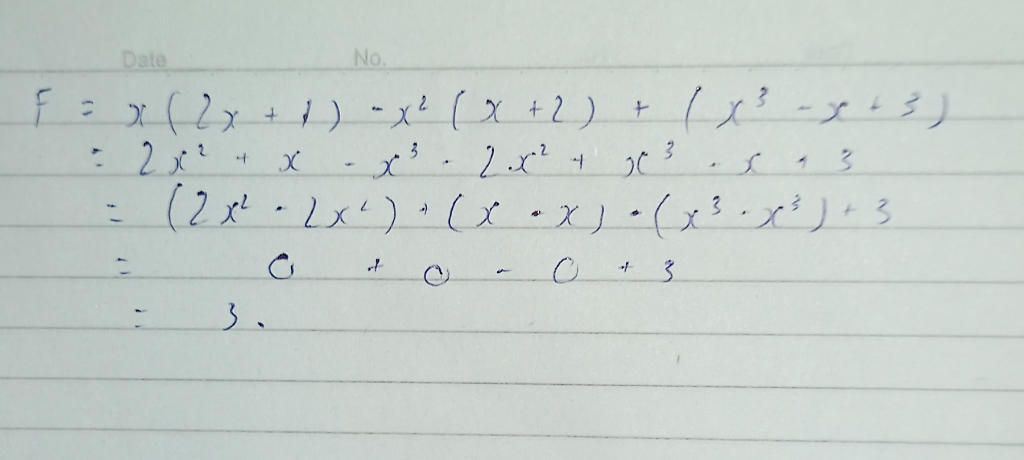 Date No.
F = x(2x + 1) - x² (x + 2) + (x³ - x + 3)
= 2x² + x - x³ - 2.x² + x³ - x + 3
= (2x² - 2x²) + (x - x) - (x³ - x³) + 3
= 0 + 0 - 0 + 3
= 3.